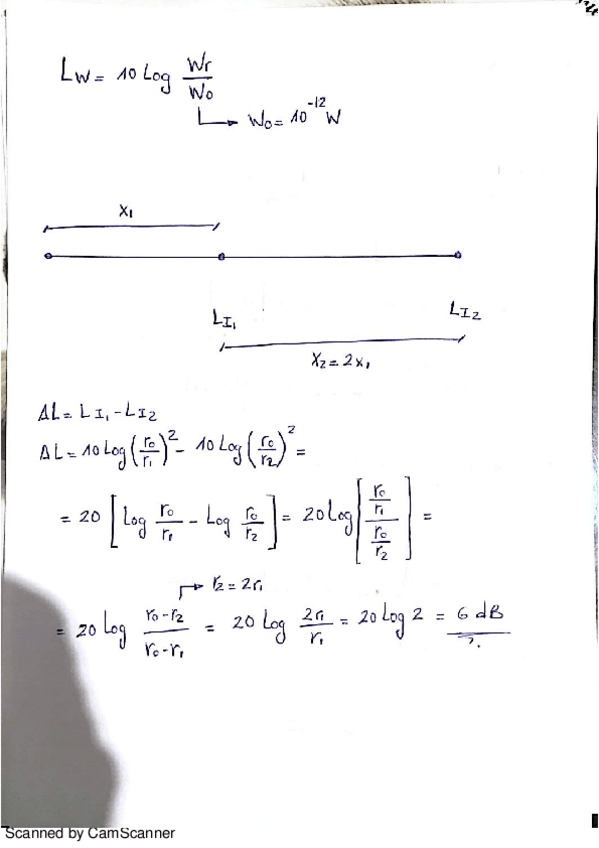 Lw = 10 Log Wr/Wo
↳ Wo = 10^-12 W
x₁
LI₁ LI₂
x₂ = 2x₁
ΔL = LI₁ - LI₂
ΔL = 10 Log (r₀/r₁)² - 10 Log (r₀/r₂)² =
= 20 [Log r₀/r₁ - Log r₀/r₂] = 20 Log [(r₀/r₁)/(r₀/r₂)] =
r₂ = 2r₁
= 20 Log (r₀-r₂)/(r₀-r₁) = 20 Log 2r₁/r₁ = 20 Log 2 = 6 dB
Scanned by CamScanner